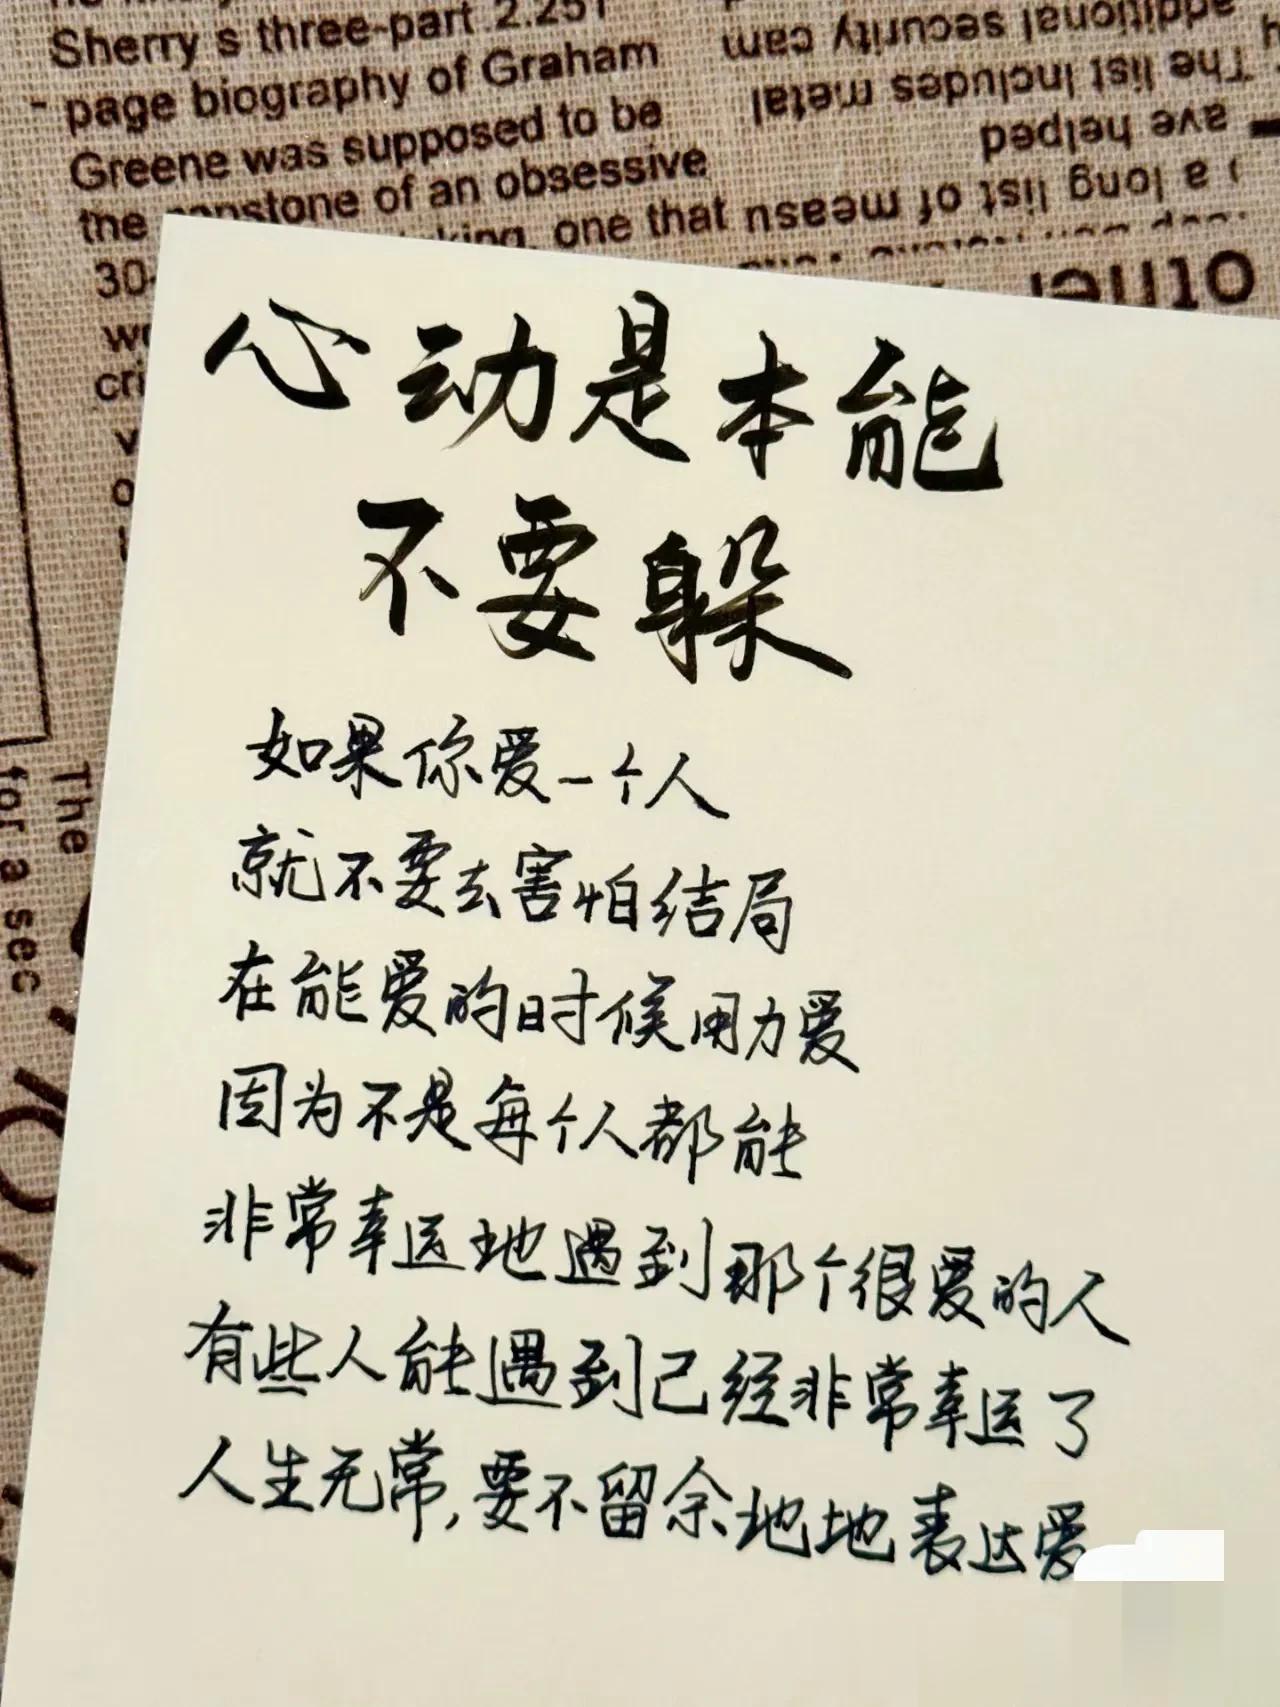 Sherry s three-part 2.251
page biography of Graham
Greene was supposed to be
the capstone of an obsessive
one that
additional security cam
The list includes metal
ave helped
a long list of measu
other
30-
The
for a sec
心动是本能
不要躲
如果你爱一个人
就不要去害怕结局
在能爱的时候用力爱
因为不是每个人都能
非常幸运地遇到那个很爱的人
有些人能遇到已经非常幸运了
人生无常,要不留余地地表达爱